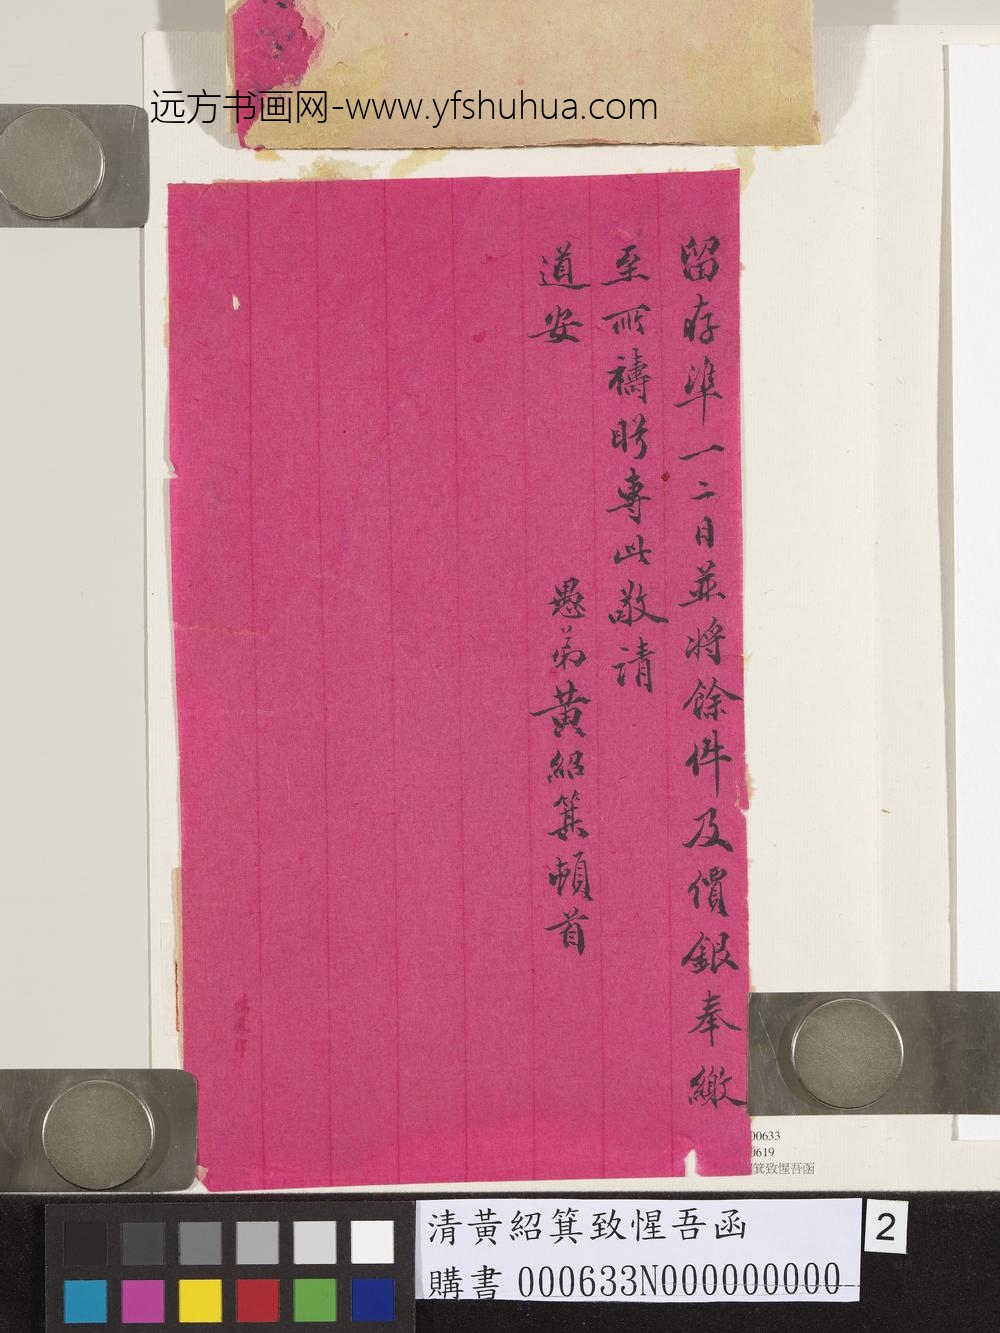 远方书画网-www.yfshuhua.com
留存準一二日並將餘件及價銀奉繳
至所禱盼專此敬請
道安
愚弟黃紹箕頓首
00633
0619
箕致惺吾函
清黃紹箕致惺吾函
購書 000633N000000000
2